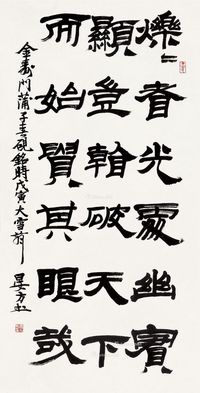 爍〻者光處幽實
顯登翰破天下
而始貿其眼哉
金壽門蒲子春硯銘時戊寅大雪前